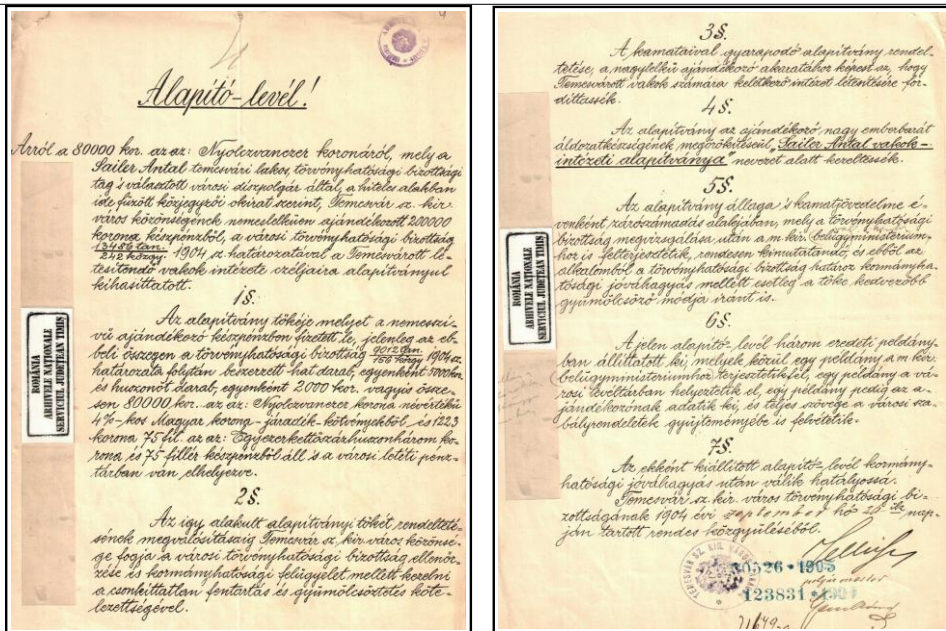 Alapító-levél!
Arról a 80000 kor. az az: Nyolczvanezer koronáról, mely a
Sailer Antal temesvári lakos, törvényhatósági bizottsági
tag s választott városi díszpolgár által, a hiteles alakban
ide fűzött közjegyzői okirat szerint, Temesvár sz. kir.
város közönségének nemeslelkűen ajándékozott 200000
korona készpénzből, a városi törvényhatósági bizottság
13486 tan.
242 közgy. 1904 sz. határozatával a Temesvárott lé-
tesítendő vakok intézete czéljaira alapítványul
kihasíttatott.
1§.
Az alapítvány tőkéje melyet a nemesszí-
vű ajándékozó készpénzben fizetett le, jelenleg az eb-
beli összegen a törvényhatósági bizottság 9012 tan. 1904 sz.
határozata folytán beszerzett hat darab, egyenként 5000 kor.
és huszonöt darab, egyenként 2000 kor. vagyis össze-
sen 80000 kor. az az: Nyolczvanezer korona névértékű
4%-kos Magyar korona-járadék-kötvényekből, és 1223
korona 75 fil. az az: Egyezerkettőszázhuszonhárom ko-
rona és 75 fillér készpénzből áll s a városi letéti pénz-
tárban van elhelyezve.
2§.
Az így alakult alapítványi tőkét rendelteté-
sének megvalósításáig Temesvár sz. kir. város közönsé-
ge fogja a városi törvényhatósági bizottság ellenőr-
zése és kormányhatósági felügyelet mellett kezelni
a csonkíttatlan fentartás és gyümölcsöztetés köte-
lezettségével.
ROMÂNIA
ARHIVELE NAȚIONALE
SERVICIUL JUDEȚEAN TIMIȘ
3§.
A kamataival gyarapodó alapítvány rendel-
tetése, a nagylelkű ajándékozó akaratához képest az, hogy
Temesvárott vakok számára keletkező intézet létesítésére for-
díttassék.
4§.
Az alapítvány az ajándékozó, nagy emberbarát
áldozatkészségének megörökítéseül, "Sailer Antal vakok-
intézeti alapítványa" nevezet alatt kezeltessék.
5§.
Az alapítvány állaga s kamatjövedelme é-
venként zárszámadás alakjában, mely a törvényhatósági
bizottság megvizsgálása után a m. kir. belügyminisztérium-
hoz is felterjesztetik, rendesen kimutatandó, és ebből az
alkalomból a törvényhatósági bizottság határoz kormányha-
tósági jóváhagyás mellett esetleg a tőke kedvezőbb
gyümölcsöző módja iránt is.
6§.
A jelen alapító-levél három eredeti példány-
ban állíttatott ki, melyek közül egy példány a m. kir.
belügyminisztériumhoz terjesztetik fel, egy példány a vá-
rosi levéltárban helyeztetik el, egy példány pedig az a-
jándékozónak adatik ki, és teljes szövege a városi sza-
bályrendeletek gyűjteményébe is felvétetik.
7§.
Az ekként kiállított alapító-levél kormány-
hatósági jóváhagyás után válik hatályossá.
Temesvár sz. kir. város törvényhatósági bi-
zottságának 1904 évi szeptember hó 26 ik nap-
ján tartott rendes közgyűléséből.
polgármester
123831
ROMÂNIA
ARHIVELE NAȚIONALE
SERVICIUL JUDEȚEAN TIMIȘ